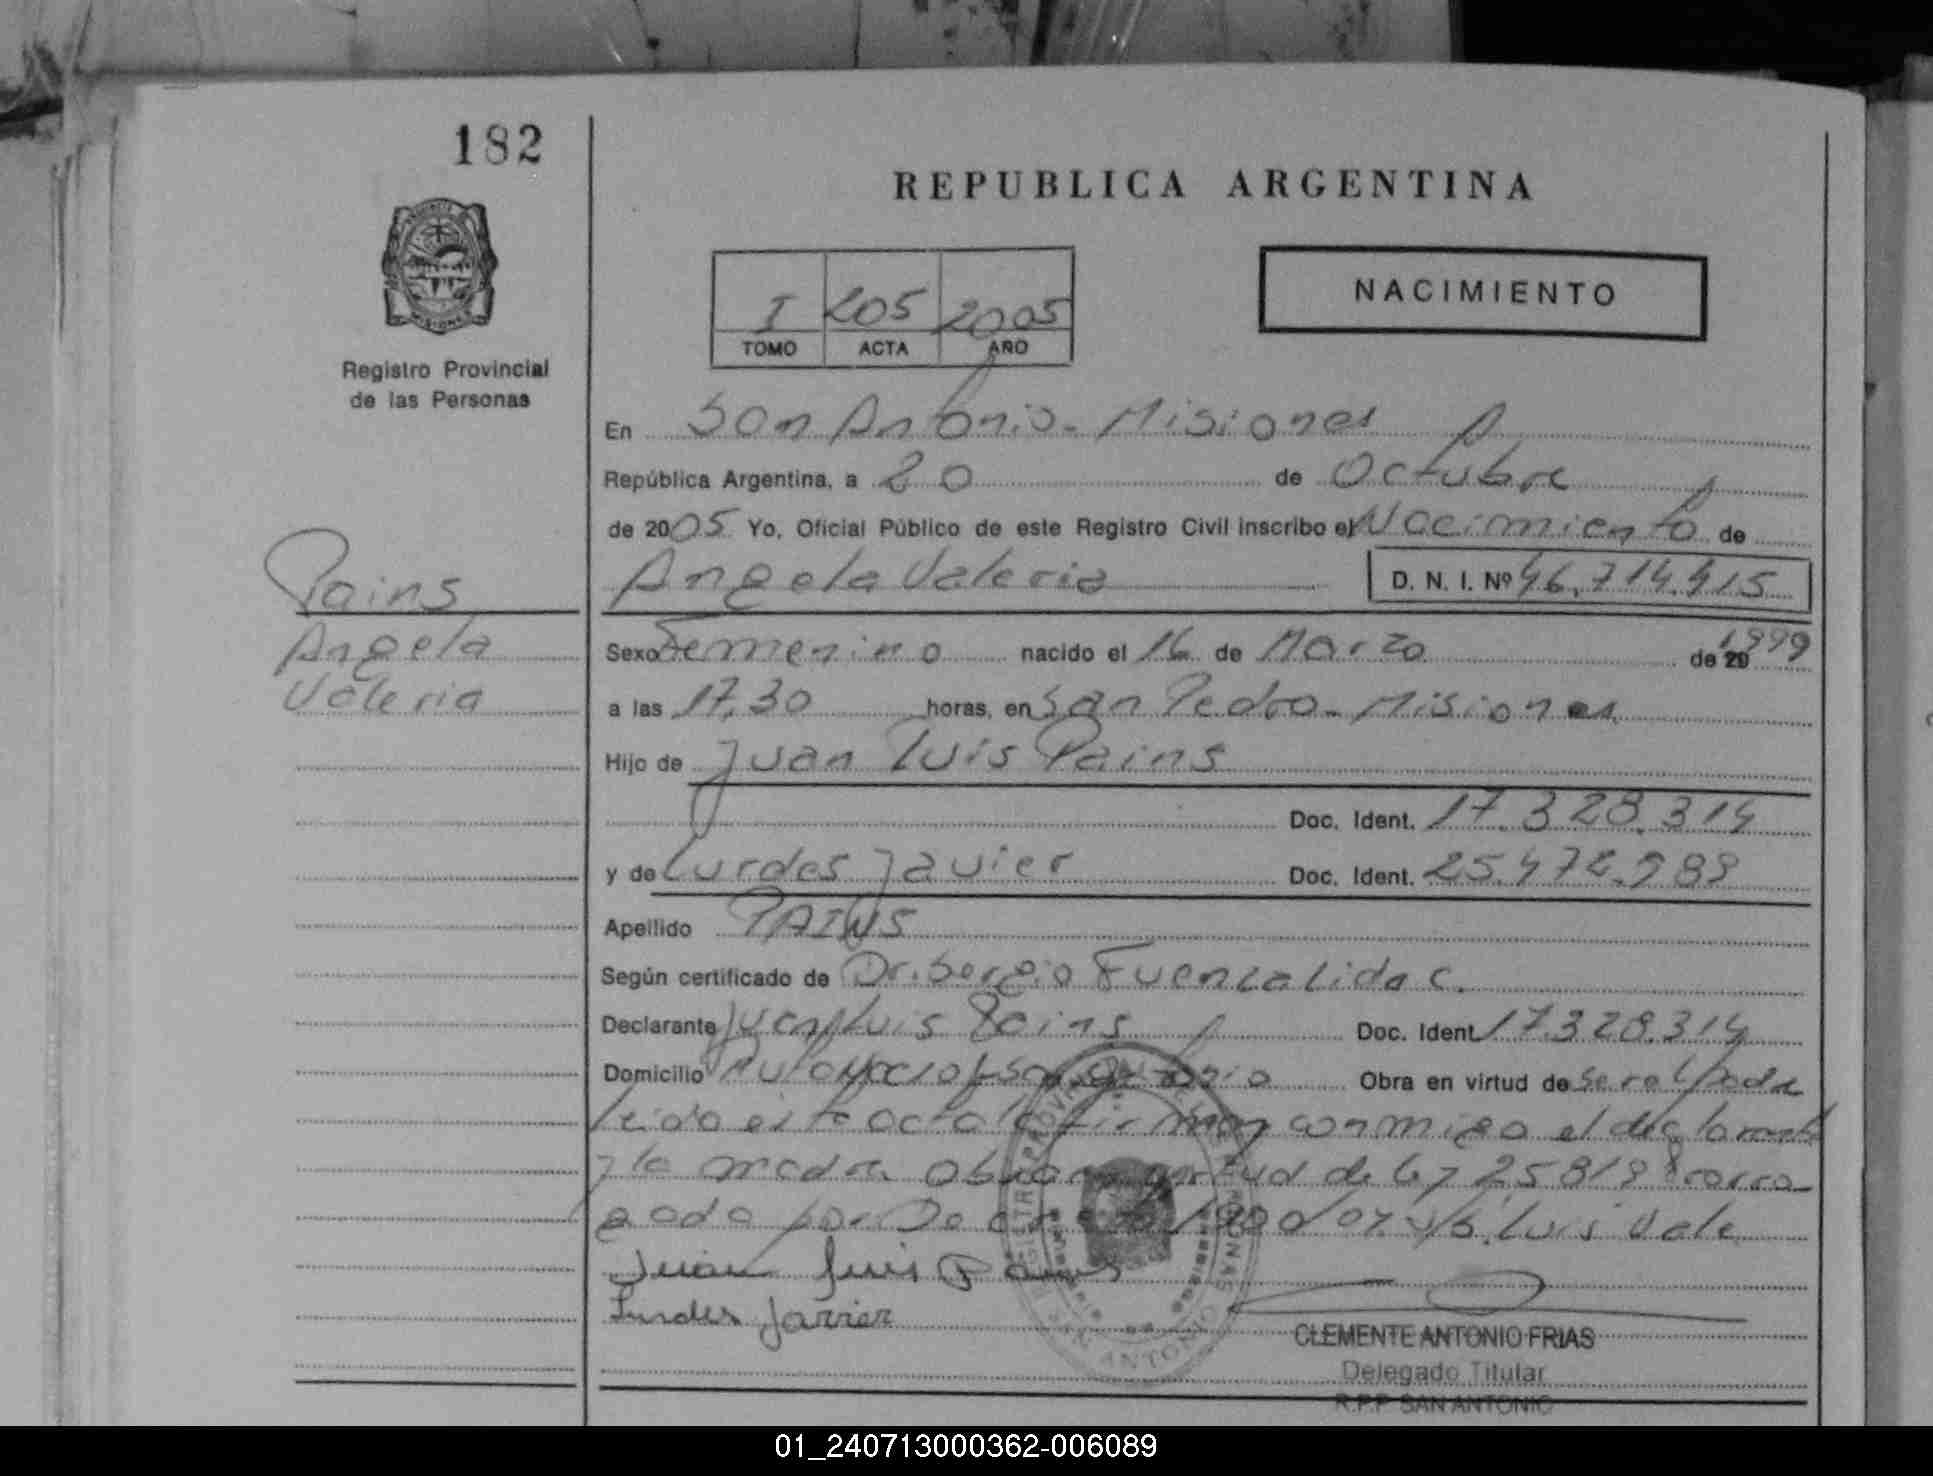 182
REPUBLICA ARGENTINA
MISIONES
Registro Provincial
de las Personas
I 205 2005
TOMO ACTA AÑO
NACIMIENTO
En San Antonio - Misiones
República Argentina, a 20 de Octubre
de 2005 Yo, Oficial Público de este Registro Civil inscribo el Nacimiento de
Angela Valeria D. N. I. Nº 46.714.415
Pains
Angela
Valeria
Sexo Femenino nacido el 16 de Marzo de 20 1999
a las 17,30 horas, en San Pedro - Misiones
Hijo de Juan Luis Pains
Doc. Ident. 17.328.314
y de Lurdes Javier Doc. Ident. 25.472.988
Apellido PAINS
Según certificado de Dr. Sergio Fuenzalida C.
Declarante Juan Luis Pains Doc. Ident 17.328.314
Domicilio San Antonio Obra en virtud de
leido este acta la firman conmigo el declarante
y la madre Obra en virtud de ley 25819 Prorro-
gado por Luis Vale
Juan Luis Pains
Lurdes Javier
SAN ANTONIO
CLEMENTE ANTONIO FRIAS
Delegado Titular
R.P.P SAN ANTONIO
01_240713000362-006089